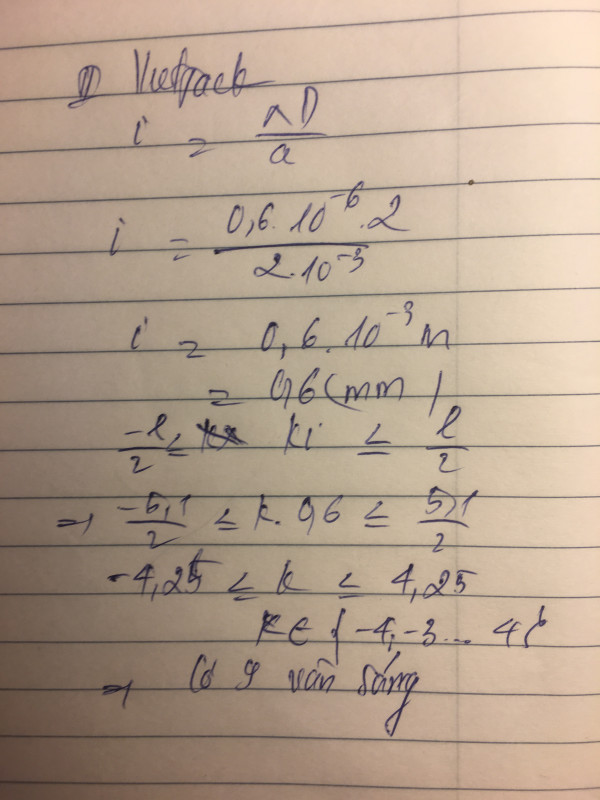 1) Vietjack
i = λD/a
i = 0,6.10⁻⁶.2/2.10⁻³
i = 0,6.10⁻³ m
= 0,6 (mm)
-l/2 ≤ ki ≤ l/2
=> -5,1/2 ≤ k.0,6 ≤ 5,1/2
-4,25 ≤ k ≤ 4,25
k ∈ {-4,-3... 4}
=> Có 9 vân sáng